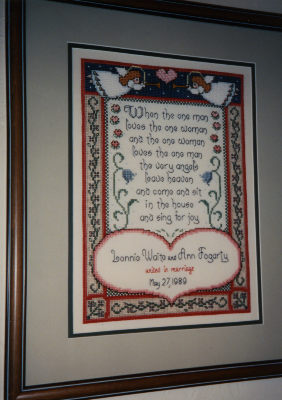 When the one man
loves the one woman
and the one woman
loves the one man
the very angels
leave heaven
and come and sit
in the house
and sing for joy
Lonnie Waito and Ann Fogarty
united in marriage
May 27, 1989